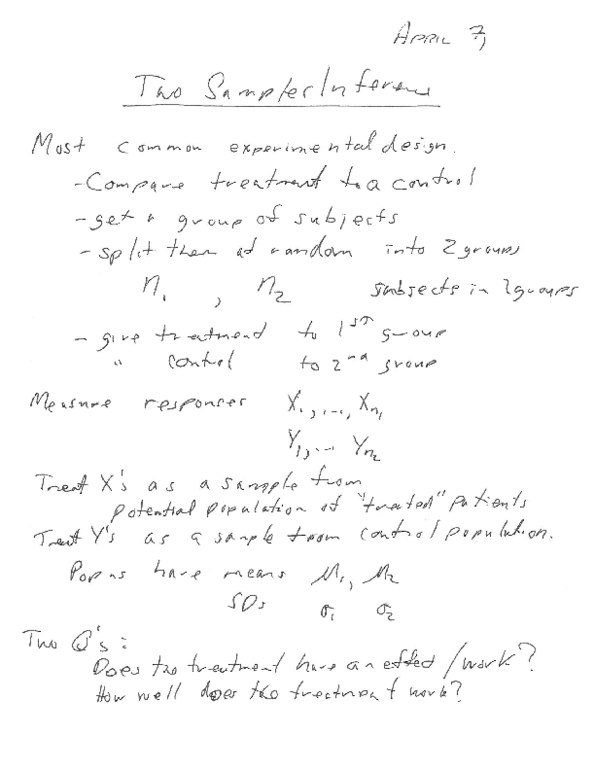 APRIL 7,
Two Sampler Inference
Most common experimental design.
- Compare treatment to a control
- get a group of subjects
- split them at random into 2 groups
n₁ , n₂ subjects in 2 groups
- give treatment to 1ST group
" control to 2nd group
Measure responses X₁,..., Xn₁
Y₁,... Yn₂
Treat X's as a sample from
potential population of "treated" patients
Treat Y's as a sample from control population.
Popns have means M₁, M₂
SDs σ₁ σ₂
Two Q's:
Does the treatment have an effect/work?
How well does the treatment work?